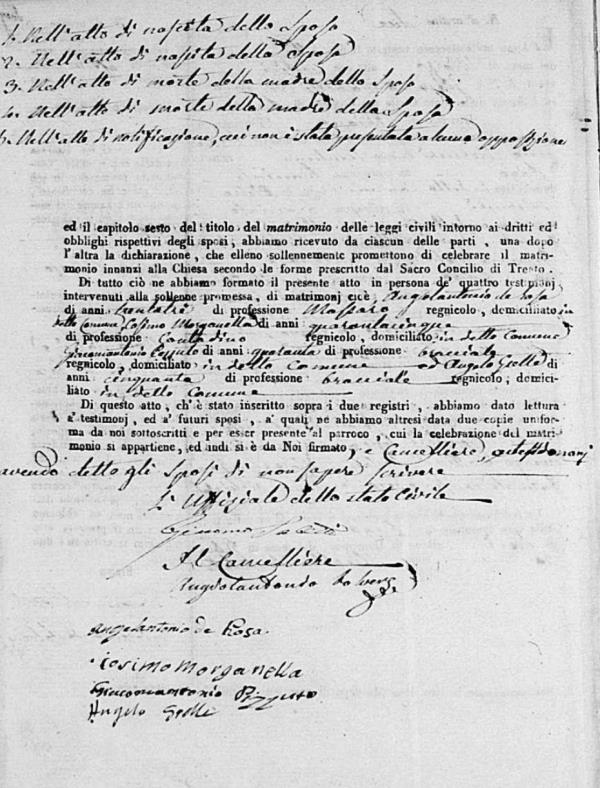 1. Nell'atto di nascita dello Sposo
2. Nell'atto di nascita della Sposa
3. Nell'atto di morte della madre dello Sposo
4. Nell'atto di morte della madre della Sposa
5. Nell'atto di notificazione, cui non è stata presentata alcuna opposizione
ed il capitolo sesto del titolo del matrimonio delle leggi civili intorno ai dritti ed
obblighi rispettivi degli sposi, abbiamo ricevuto da ciascun delle parti, una dopo
l'altra la dichiarazione, che elleno sollennemente promettono di celebrare il matri-
monio innanzi alla Chiesa secondo le forme prescritto dal Sacro Concilio di Trento.
Di tutto ciò ne abbiamo formato il presente atto in persona de' quattro testimonj
intervenuti alla sollenne promessa, di matrimonj cioè, Angelantonio de Rosa
di anni trentatrè di professione Massaro regnicolo, domiciliato in
detto Comune Cosimo Morganella di anni quarantacinque
di professione Contadino regnicolo, domiciliato in detto Comune
Giacomantonio di anni quaranta di professione bracciale
regnicolo, domiciliato in detto Comune ed Angelo Grelle di
anni cinquanta di professione bracciale regnicolo, domici-
liato in detto Comune
Di questo atto, ch'è stato inscritto sopra i due registri, abbiamo dato lettura
a' testimonj, ed a' futuri sposi, a' quali ne abbiamo altresì data due copie unifor-
ma da noi sottoscritti e per esser presente al parroco, cui la celebrazione del matri-
monio si appartiene, ed indi si è da Noi firmato, e Cancelliere,
avendo detto gli Sposi di non sapere scrivere
L'Uffiziale dello stato Civile
Il Cancelliere
Angelantonio de Rosa
Cosimo Morganella
Giacomantonio Pizzuto
Angelo Grelle